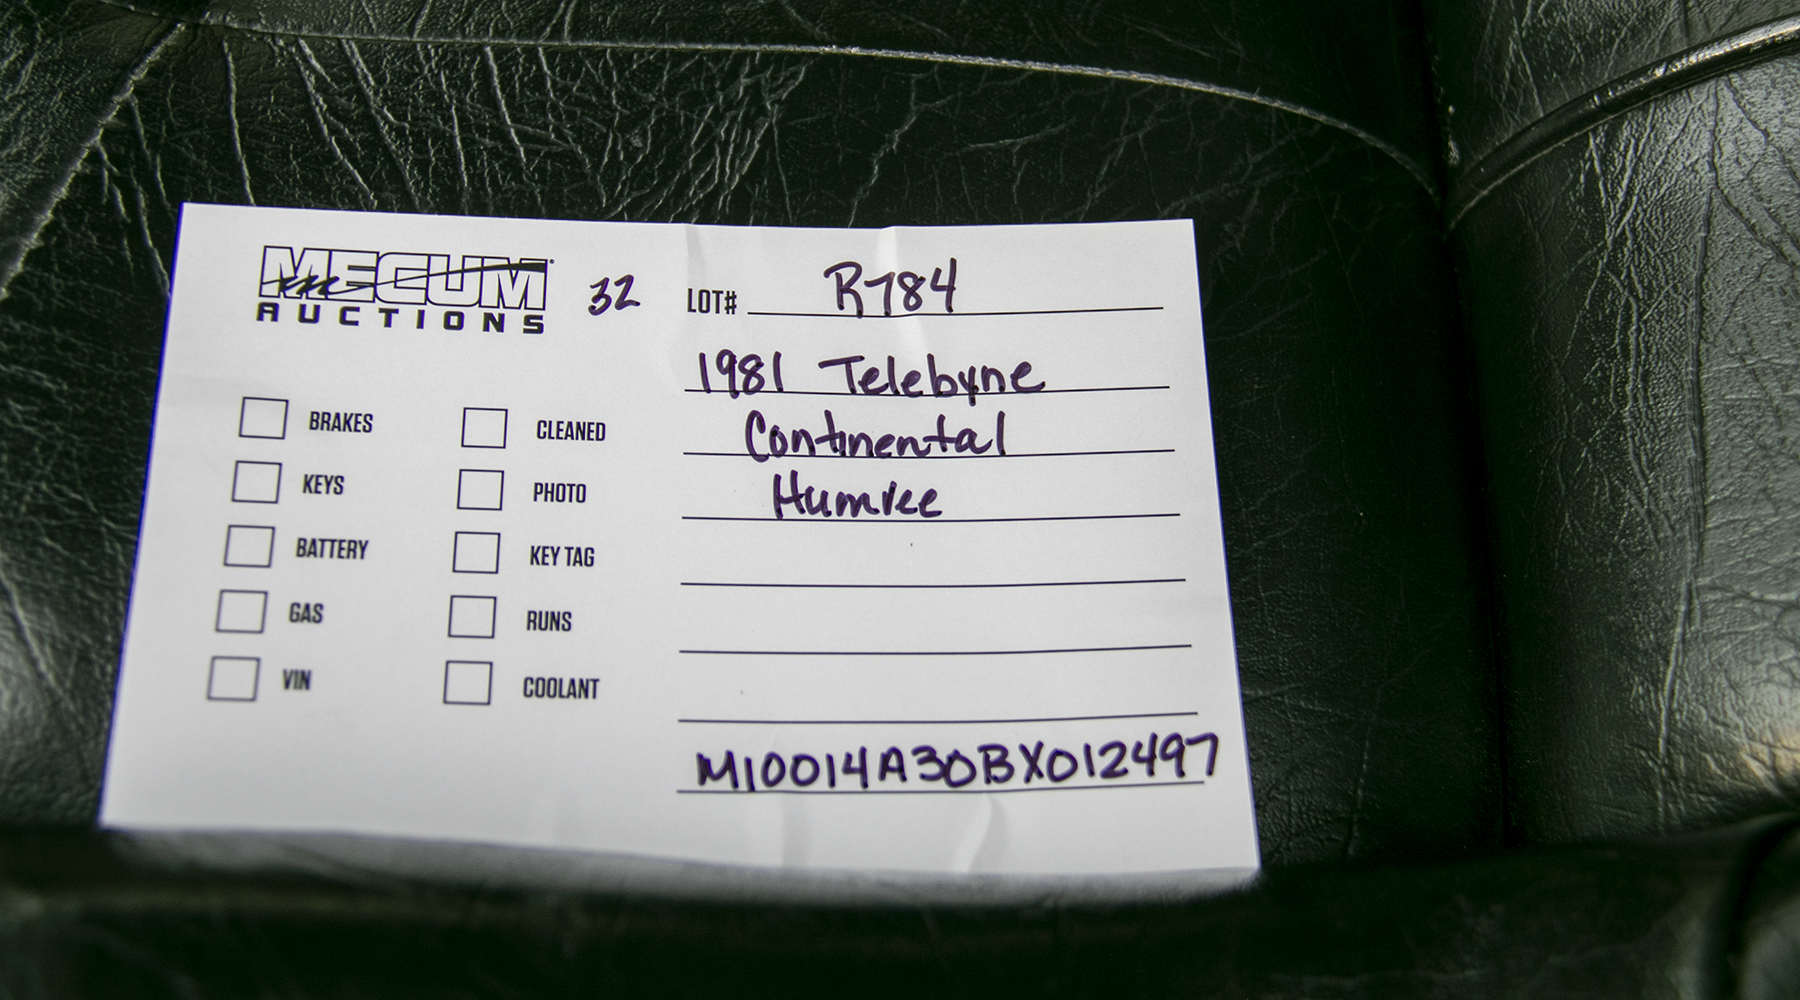 MECUM
AUCTIONS
32
LOT# R784
1981 Telebyne
Continental
Humvee
BRAKES
CLEANED
KEYS
PHOTO
BATTERY
KEY TAG
GAS
RUNS
VIN
COOLANT
M10014A30BX012497